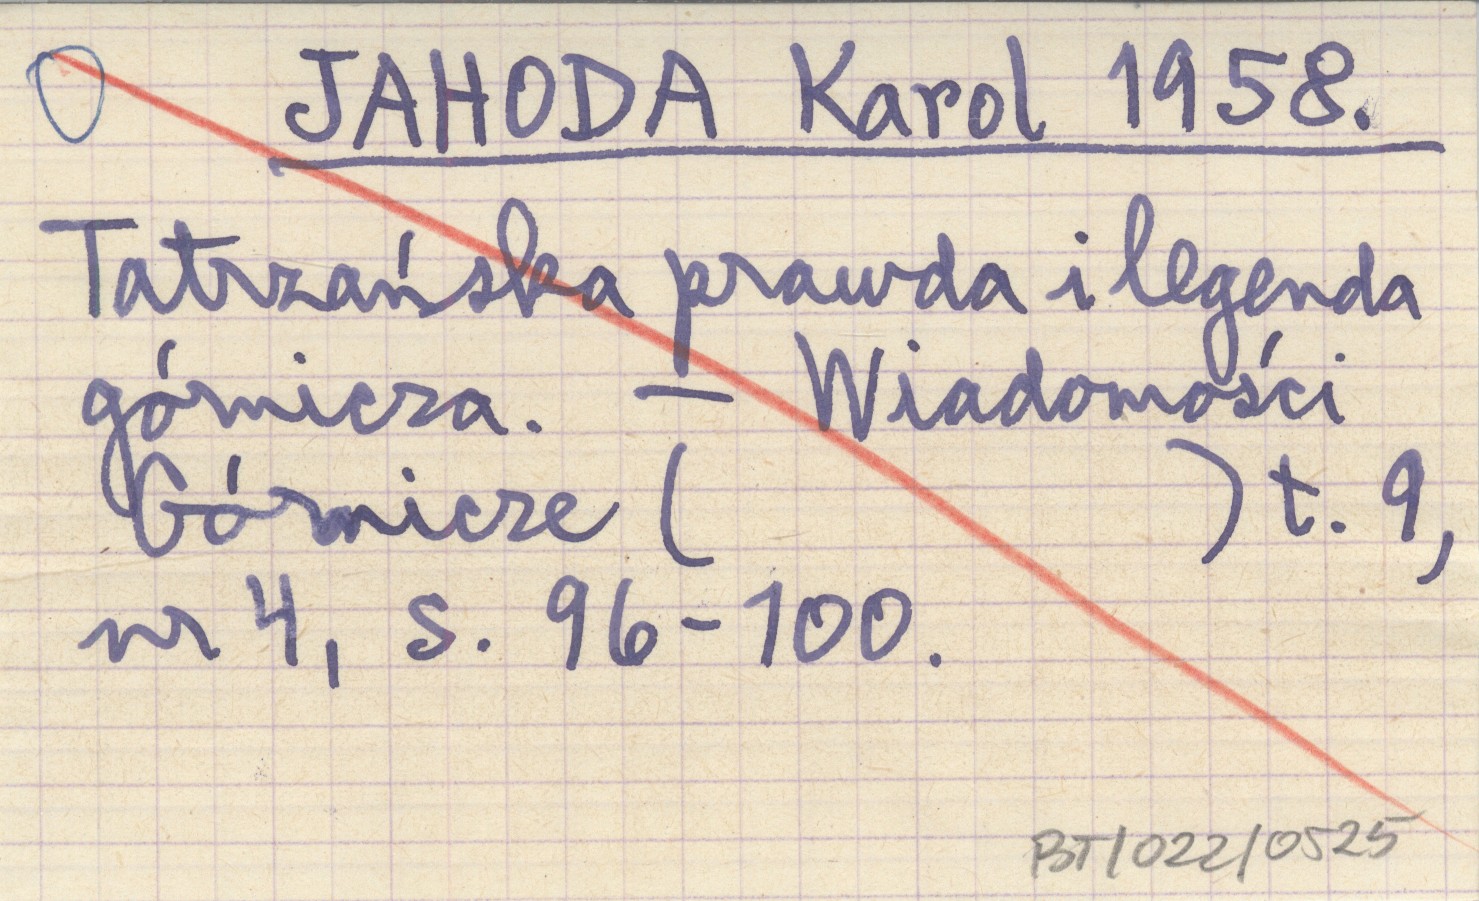 JAHODA Karol 1958.
Tatrzańska prawda i legenda
górnicza. — Wiadomości
Górnicze (               ) t. 9,
nr 4, s. 96-100.
BT/022/0525